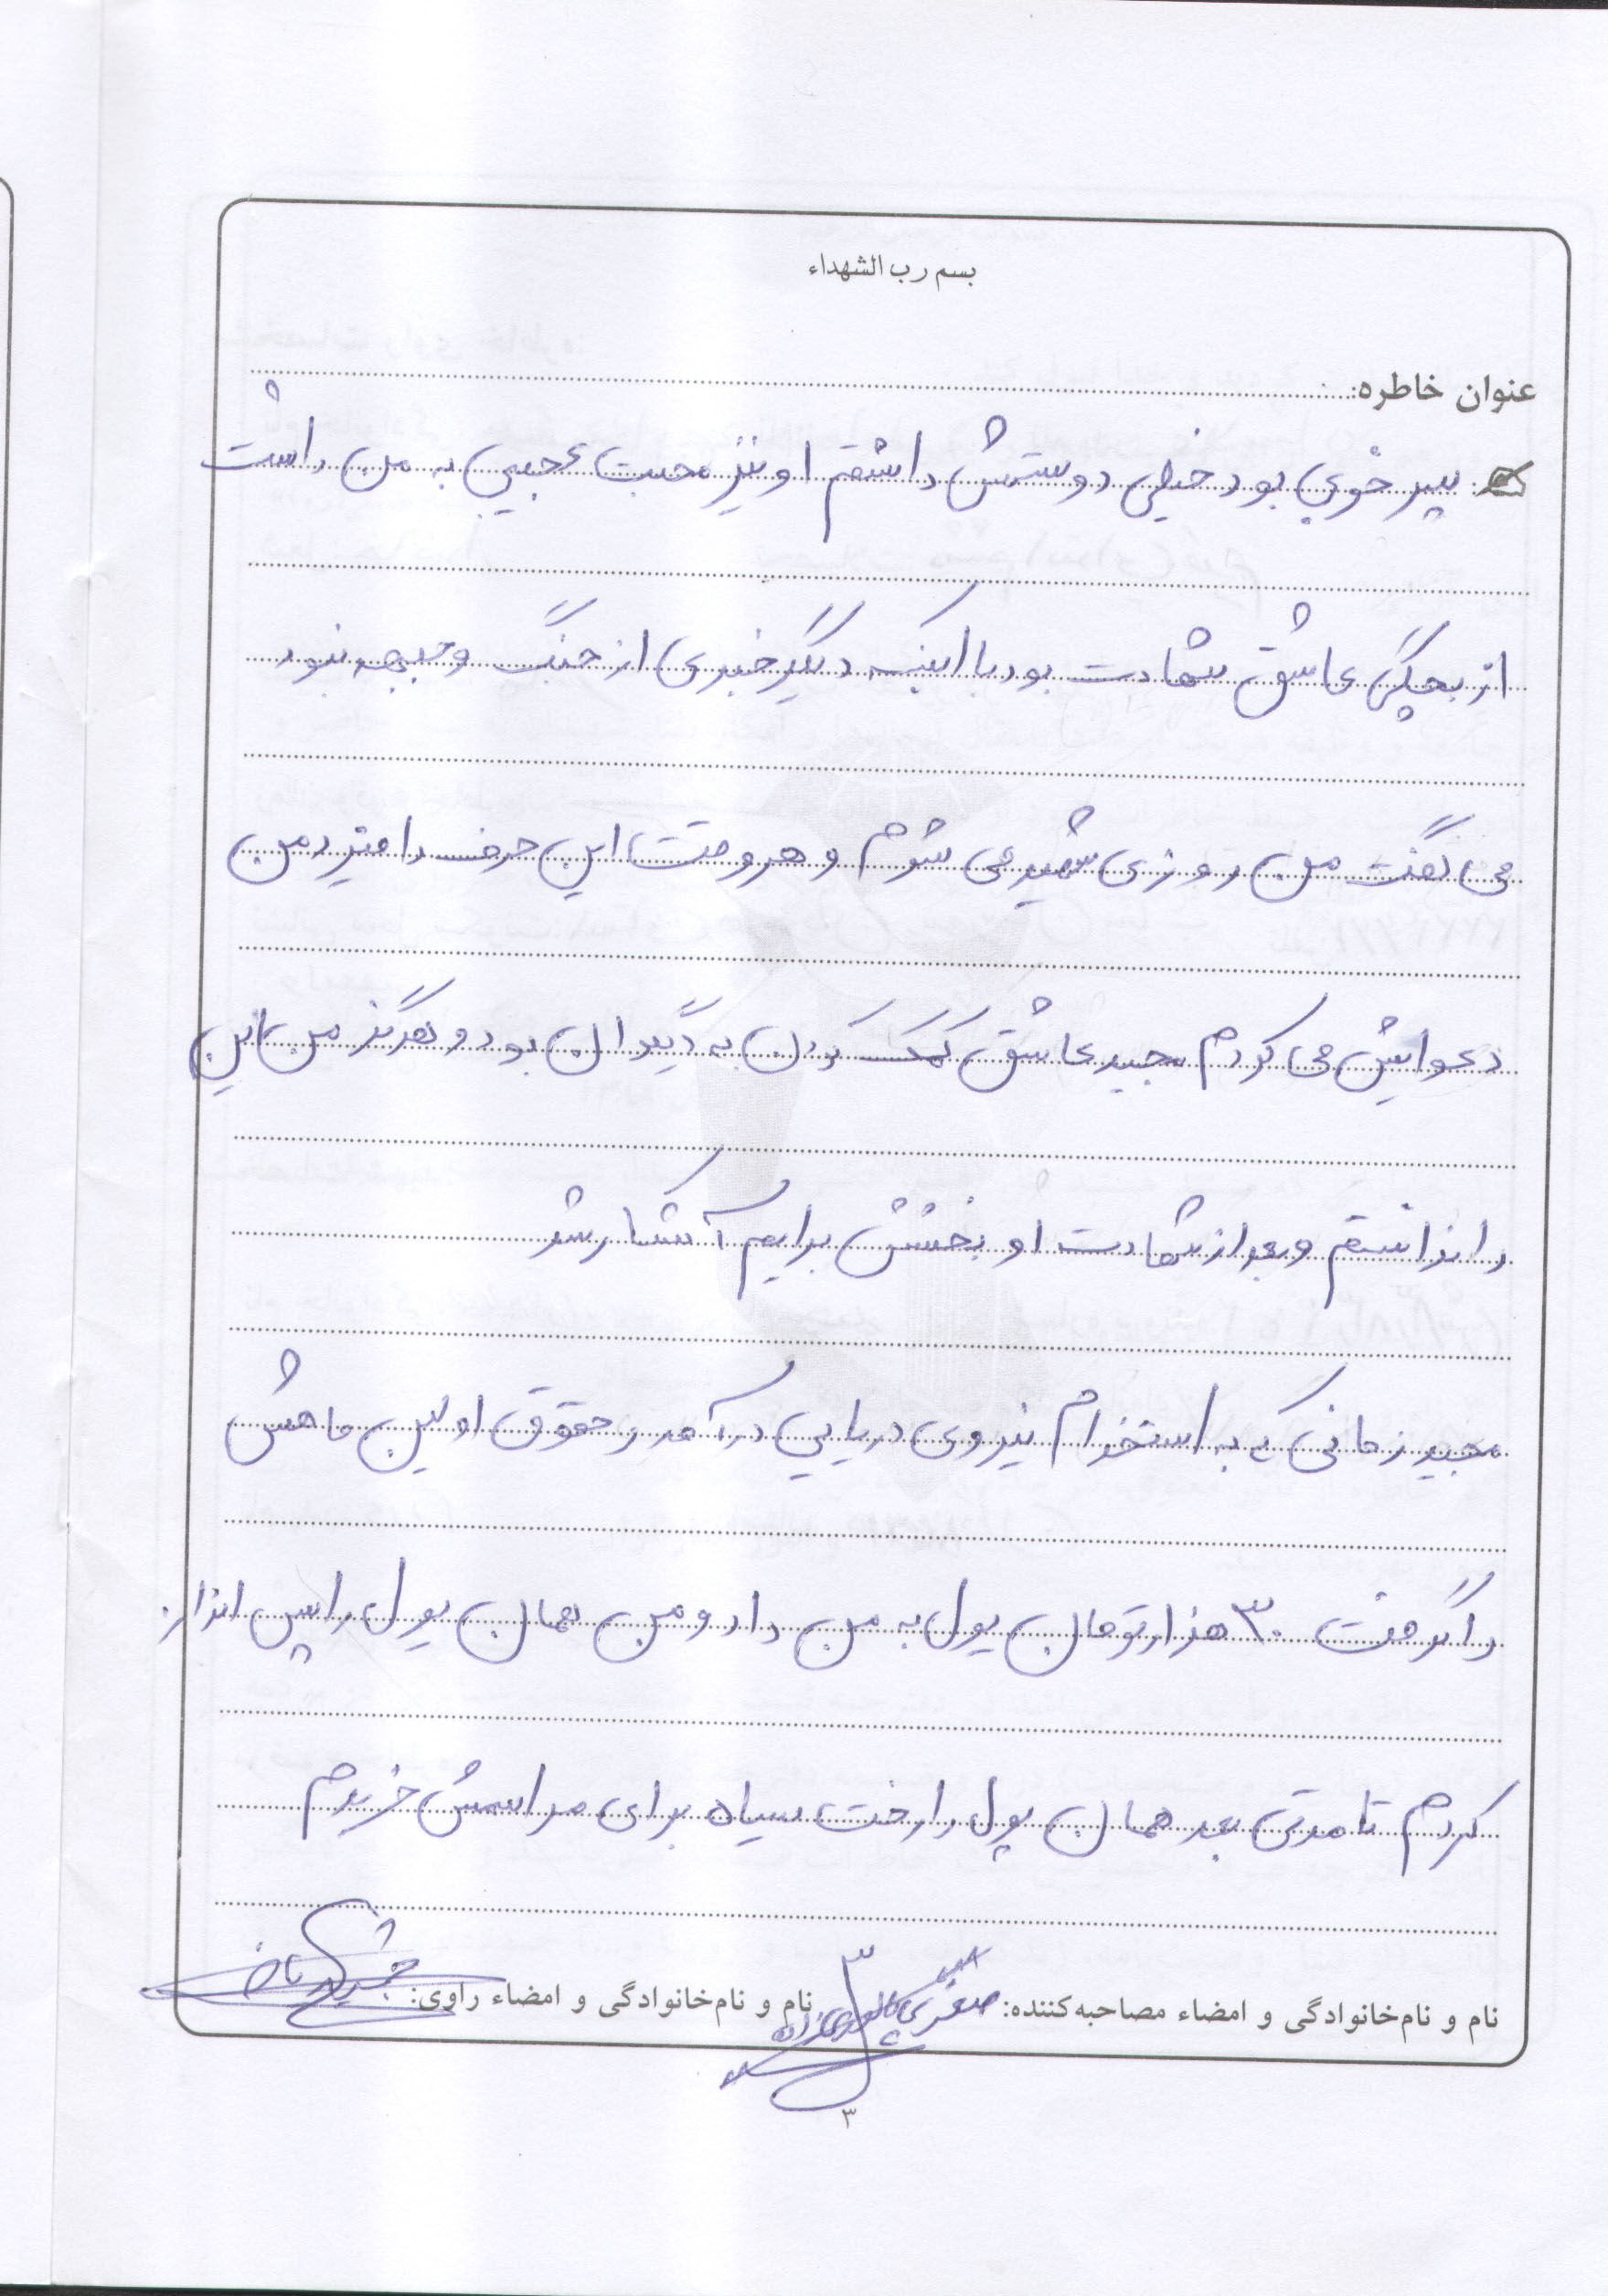 بسم رب الشهداء
عنوان خاطره:
پسر خوبی بود خیلی دوستش داشتم او نیز محبت عجیبی به من داشت
از بچگی عاشق شهادت بود با اینکه دیگر خبری از جنگ و جبهه نبود
می گفت من روزی شهید می شوم و هر وقت این حرف را میزد من
دعوایش می کردم مجید عاشق کمک کردن به دیگران بود و هرگز من این
را ندانستم و بعد از شهادت او بخشش برایم آشکار شد
مجید زمانی که به استخدام نیروی دریایی درآمد و حقوق اولین ماهش
را گرفت ۳۰ هزار تومان پول به من داد و من همان پول را پس انداز
کردم تا مدتی بعد همان پول را رخت سیاه برای مراسمش خریدم
نام و نام‌خانوادگی و امضاء مصاحبه‌کننده: نام و نام‌خانوادگی و امضاء راوی:
۳